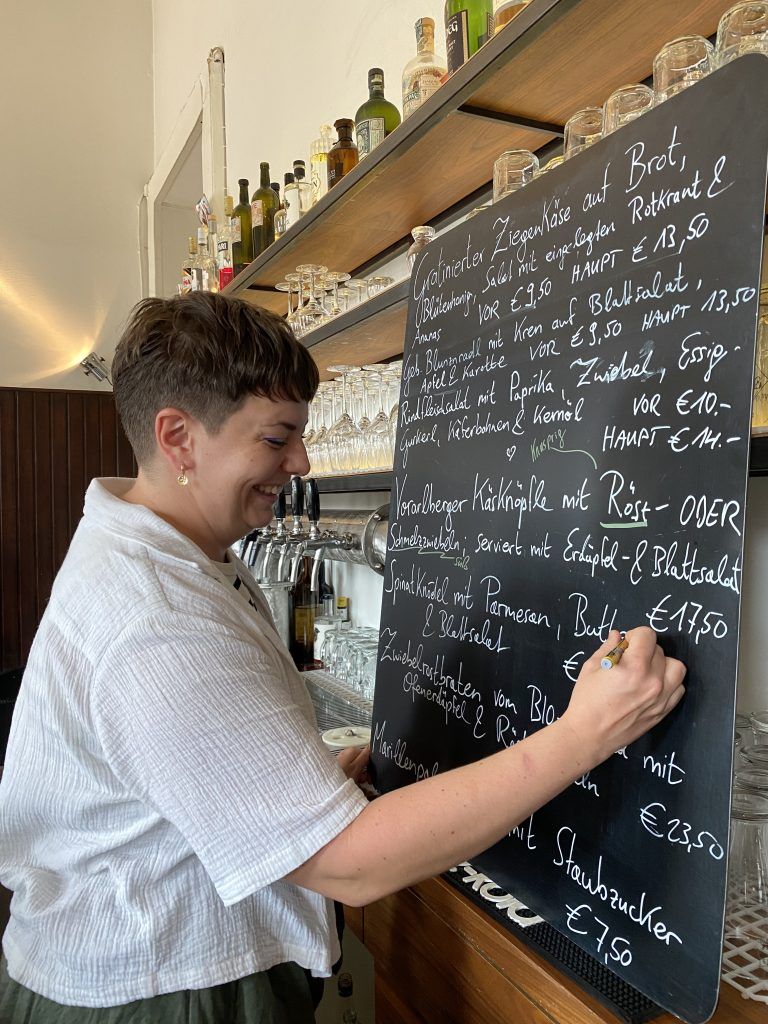 Gratinierter Ziegenkäse auf Brot,
Blütenhonig, Salat mit eingelegten Rotkraut &
Ananas VOR € 9,50 HAUPT € 13,50
Geb. Blunzenradl mit Kren auf Blattsalat,
Apfel & Karotte VOR € 9,50 HAUPT 13,50
Rindfleischsalat mit Paprika, Zwiebel, Essig-
Gurkerl, Käferbohnen & Kernöl VOR € 10.-
HAUPT € 14.-
Knusprig
Vorarlberger Käsknöpfle mit Röst- ODER
Schmelzzwiebeln; serviert mit Erdäpfel- & Blattsalat
süß
€ 17,50
Spinatknödel mit Parmesan, Butt
& Blattsalat €
Zwiebelrostbraten vom mit
Ofenerdäpfel &
€ 23,50
mit Staubzucker
€ 7,50